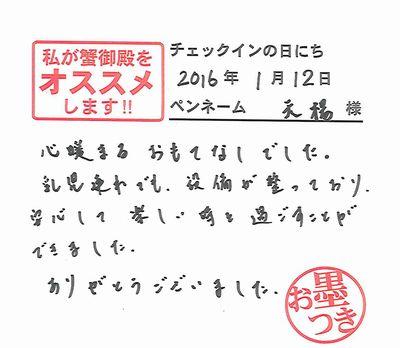 私が蟹御殿を
オススメ
します!!
チェックインの日にち
2016年 1月12日
ペンネーム 天楊 様
心暖まる おもてなしでした。
乳児連れでも、設備が整っており、
安心して 楽しい時を過ごすことが
できました。
ありがとうございました。
お墨
つき